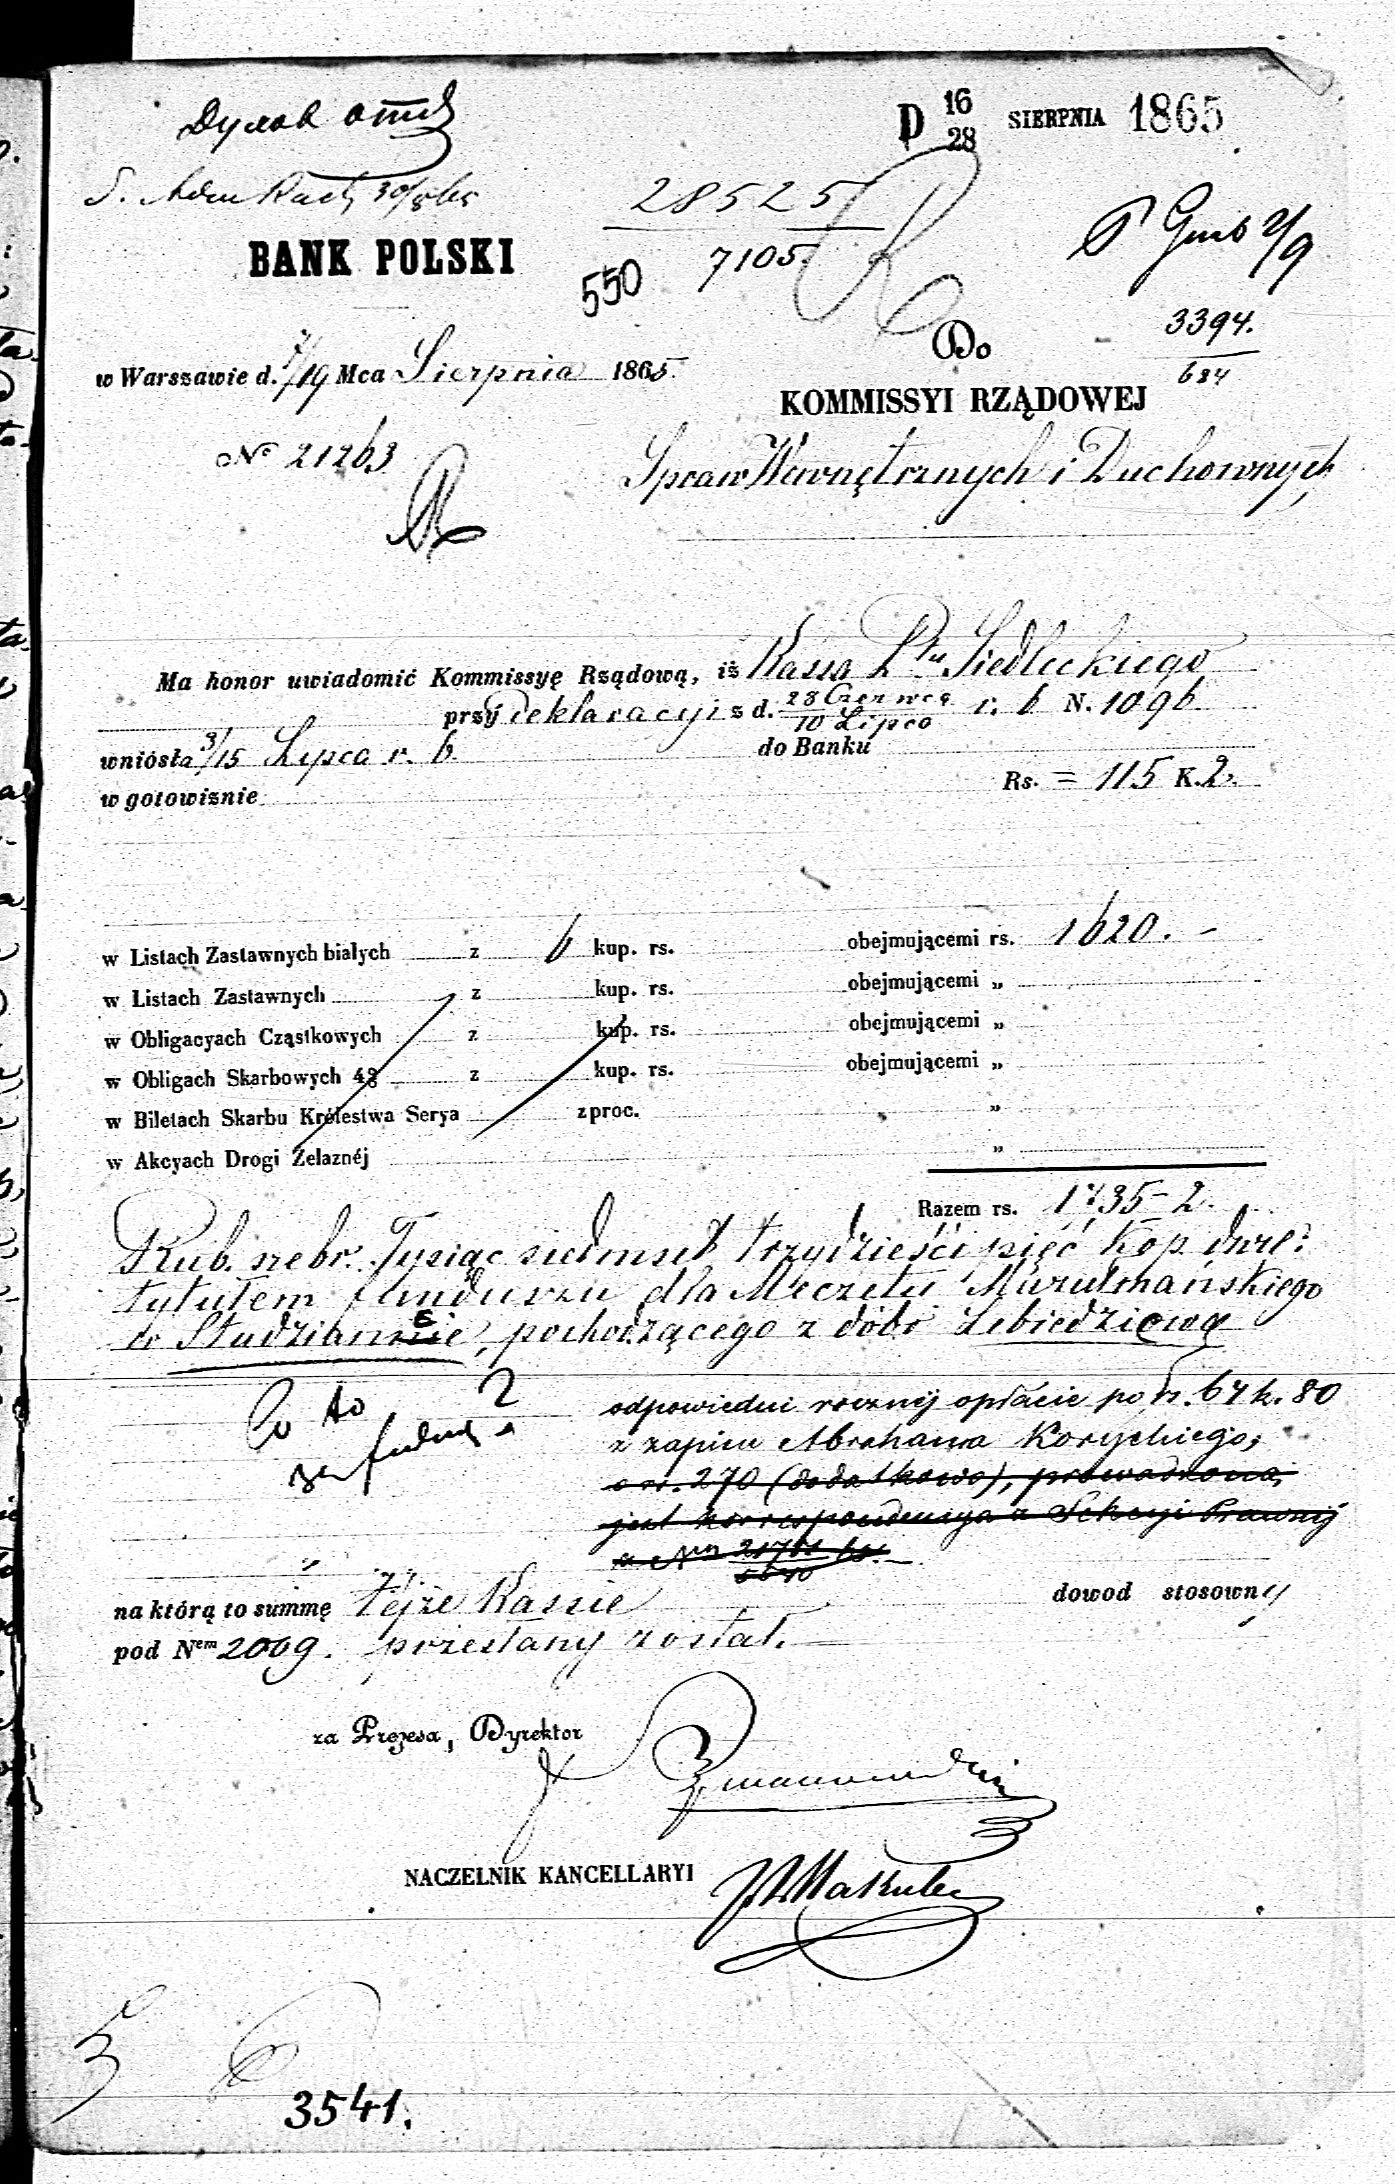 D 16/28 SIERPNIA 1865
28525
7105.
550
BANK POLSKI
3394.
684
Do
w Warszawie d. 7/19 Mca Sierpnia 1865.
KOMMISSYI RZĄDOWEJ
No 21263
Spraw Wewnętrznych i Duchownych
Ma honor uwiadomić Kommissyę Rządową, iż Kassa Ptu Siedleckiego
przy deklaracyi z d. 28 Czerwca / 10 Lipca r. b N. 1096
wniosła 3/15 Lipca r. b. do Banku
w gotowiznie Rs. = 115 K. 2.
w Listach Zastawnych białych z 6 kup. rs. obejmującemi rs. 1620. -
w Listach Zastawnych z kup. rs. obejmującemi „
w Obligacyach Cząstkowych z kup. rs. obejmującemi „
w Obligach Skarbowych 4% z kup. rs. obejmującemi „
w Biletach Skarbu Królestwa Serya z proc. „
w Akcyach Drogi Żelaznéj „
Razem rs. 1735 - 2.
Rub. srebr. Tysiąc siedmset trzydzieści pięć kop. dwie
tytułem funduszu dla Meczetu Muzułmańskiego
w Studziance, pochodzącego z dóbr Lebiedziewa
odpowiedni rocznej opłacie po rs. 67 k. 80
z zapisu Abrahama Koryckiego,
o rs. 270 (dodatkowo), prowadzona
jest korrespondencya z Sekcyi Prawnej
Co to za fundusz?
na którą to summę tejże Kassie dowod stosowny
pod Nem 2009. przesłany został.
za Prezesa, Dyrektor
NACZELNIK KANCELLARYI
3541.